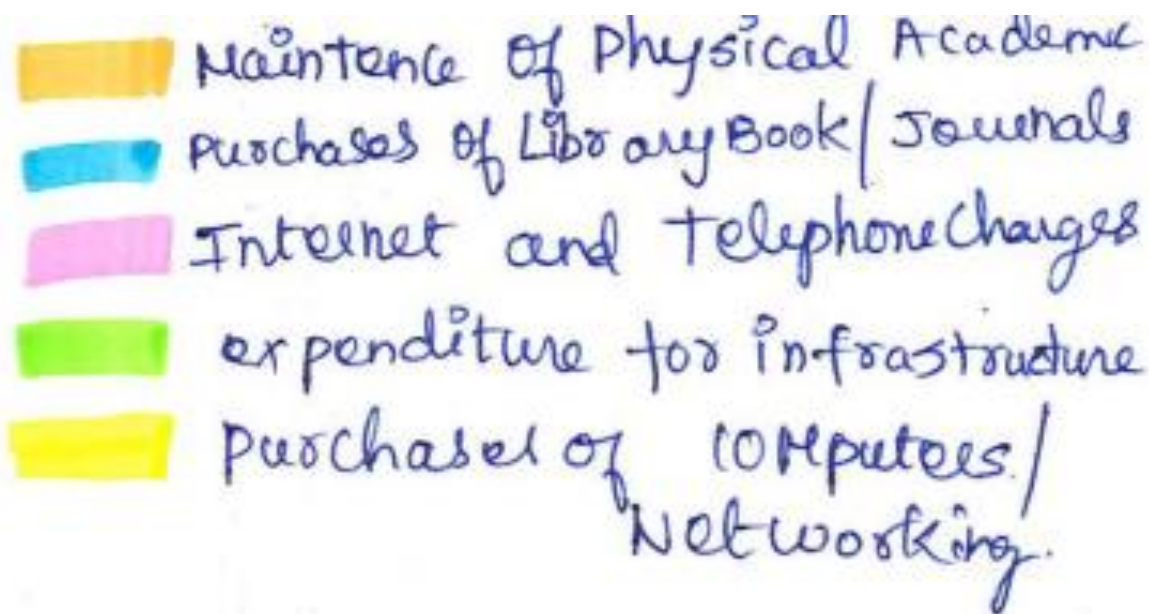 Maintence of Physical Academic
Purchases of Library Book/ Journals
Internet and Telephone Charges
expenditure for infrastructure
purchases of computers/
Networking.